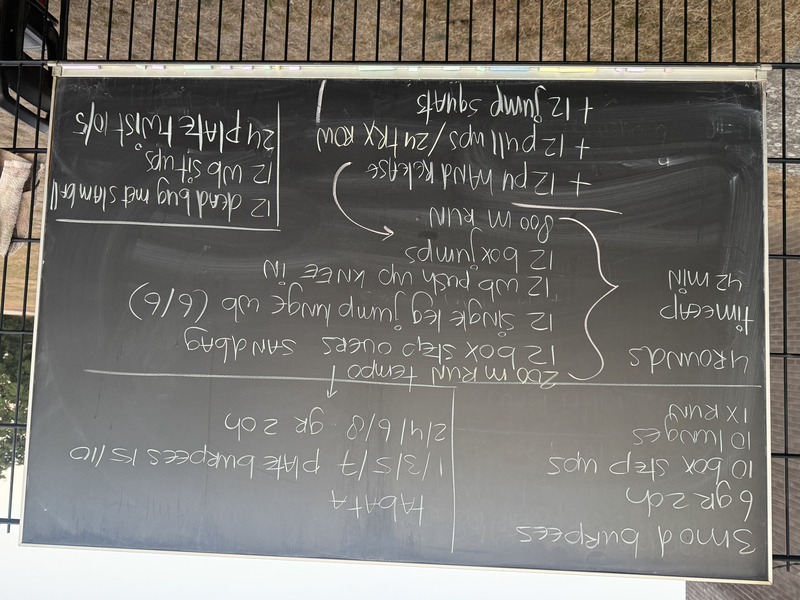 3 mod burpees
6 gr 2 oh
10 box step ups
10 lunges
1x run
tabata
1/3/5/7 plate burpees 15/10
2/4/6/8 gr 2 oh
4 rounds
timecap
42 min
200 m run tempo
12 box step overs sandbag
12 single leg jump lunge wb (6/6)
12 wb push up knee in
12 box jumps
800 m run
+ 12 pu hand release
+ 12 pull ups / 24 trx row
+ 12 jump squats
12 dead bug met slam ball
12 wb sit ups
24 plate twist 10/5